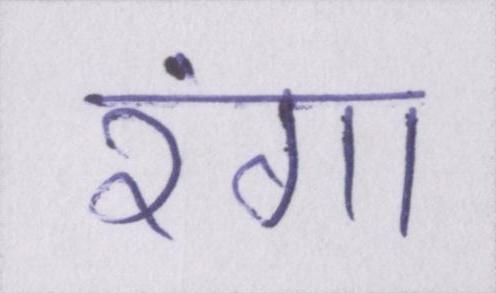 रंगा